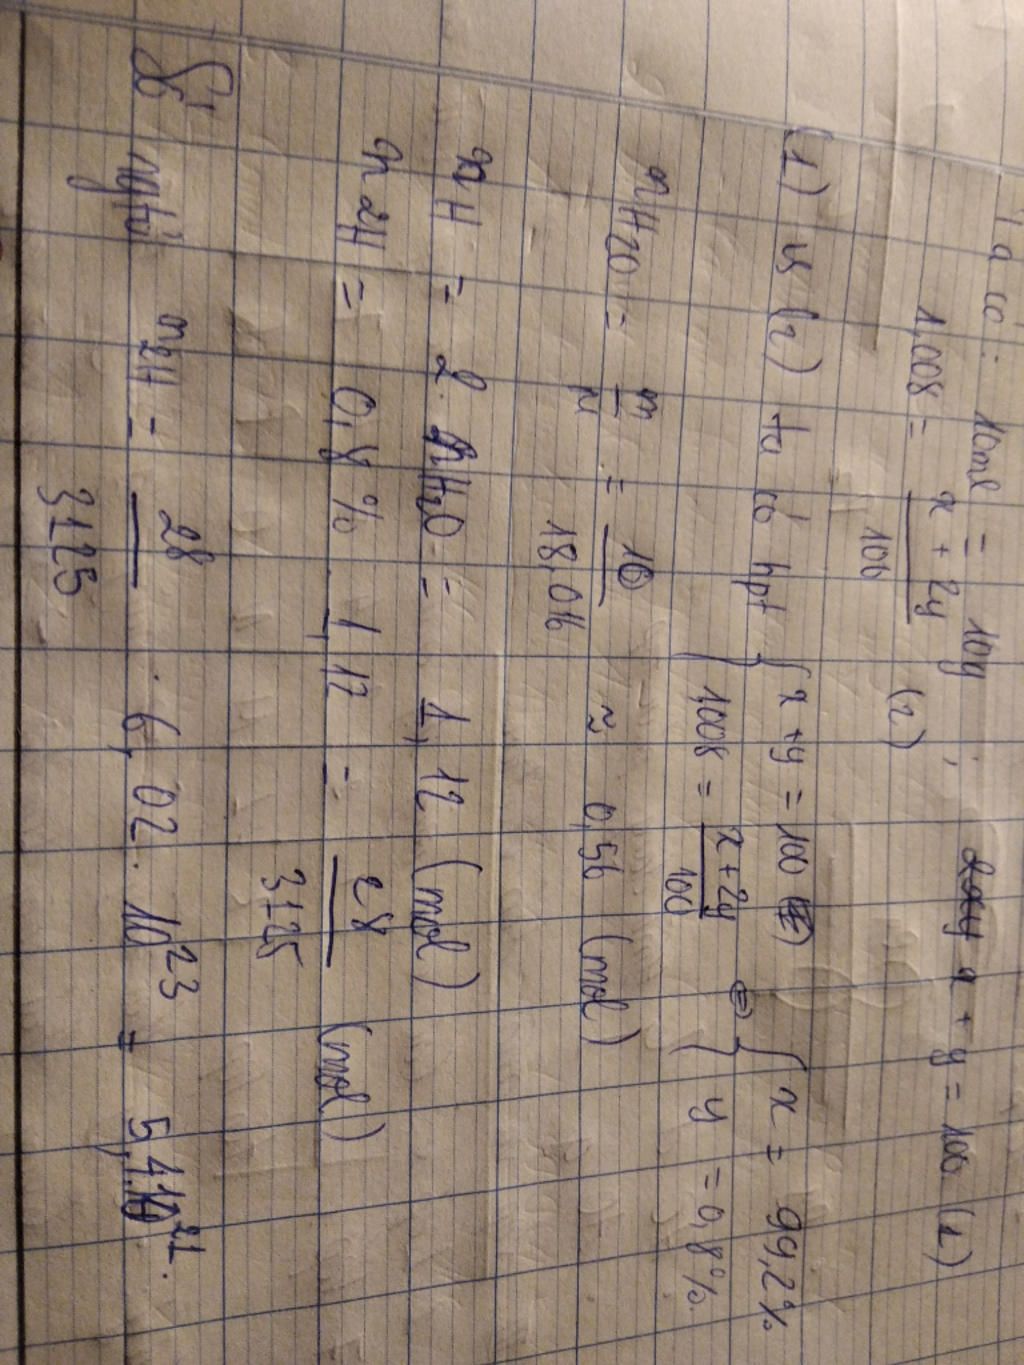 Ta có: 10ml = 10g ; x + y = 100 (1)
1,008 = \frac{x + 2y}{100} (2)
(1) và (2) ta có hpt { x + y = 100 ⇔ { x = 99,2%
{ 1,008 = \frac{x + 2y}{100} { y = 0,8%.
nH20 = \frac{m}{M} = \frac{10}{18,016} ≈ 0,56 (mol)
nH = 2. nH₂O = 1,12 (mol)
n2H = 0,8% . 1,12 = \frac{28}{3125} (mol)
Số ngtử n2H = \frac{28}{3125} . 6,02. 10^23 = 5,4.10^21.